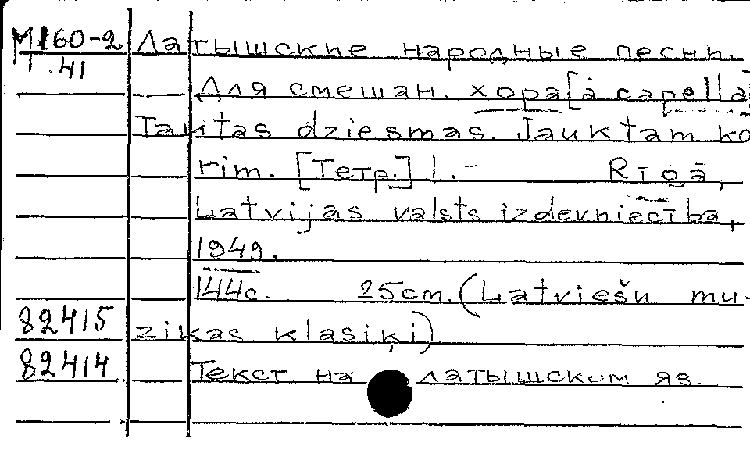 М160-2 Латышские народные песни.
Т.41
Для смешан. хора[a capella]
Tautas dziesmas. Jauktam ko
rim. [Тетр.] 1.- Rīgā,
Latvijas valsts izdevniecība,
1949.
144с. 25cm. (Latviešu mu-
82415 zikas klasiķi)
82414 Текст на латышском яз.